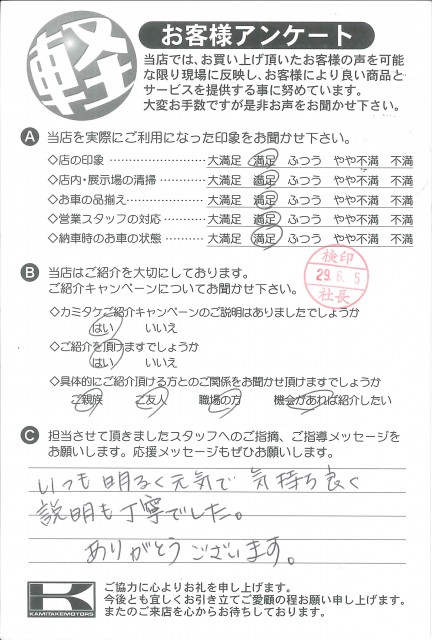 軽
お客様アンケート
当店では、お買い上げ頂いたお客様の声を可能
な限り現場に反映し、お客様により良い商品と
サービスを提供する事に努めています。
大変お手数ですが是非お声をお聞かせ下さい。
A 当店を実際にご利用になった印象をお聞かせ下さい。
◇店の印象 ‥‥‥‥‥‥‥‥ 大満足 満足 ふつう やや不満 不満
◇店内・展示場の清掃 ‥‥‥‥ 大満足 満足 ふつう やや不満 不満
◇お車の品揃え‥‥‥‥‥‥‥ 大満足 満足 ふつう やや不満 不満
◇営業スタッフの対応 ‥‥‥‥ 大満足 満足 ふつう やや不満 不満
◇納車時のお車の状態 ‥‥‥‥ 大満足 満足 ふつう やや不満 不満
検印
29.6.5
社長
B 当店はご紹介を大切にしております。
ご紹介キャンペーンについてお聞かせ下さい。
◇カミタケご紹介キャンペーンのご説明はありましたでしょうか
はい いいえ
◇ご紹介を頂けますでしょうか
はい いいえ
◇具体的にご紹介頂ける方とのご関係をお聞かせ頂けますでしょうか
ご親族 ご友人 職場の方 機会があれば紹介したい
C 担当させて頂きましたスタッフへのご指摘、ご指導メッセージを
お願いします。応援メッセージもぜひお願いします。
いつも明るく元気で 気持ち良く
説明も丁寧でした。
ありがとうございます。
K
KAMITAKEMOTORS
ご協力に心よりお礼を申し上げます。
今後とも宜しくお引き立てご愛顧の程お願い申し上げます。
またのご来店を心からお待ちしております。